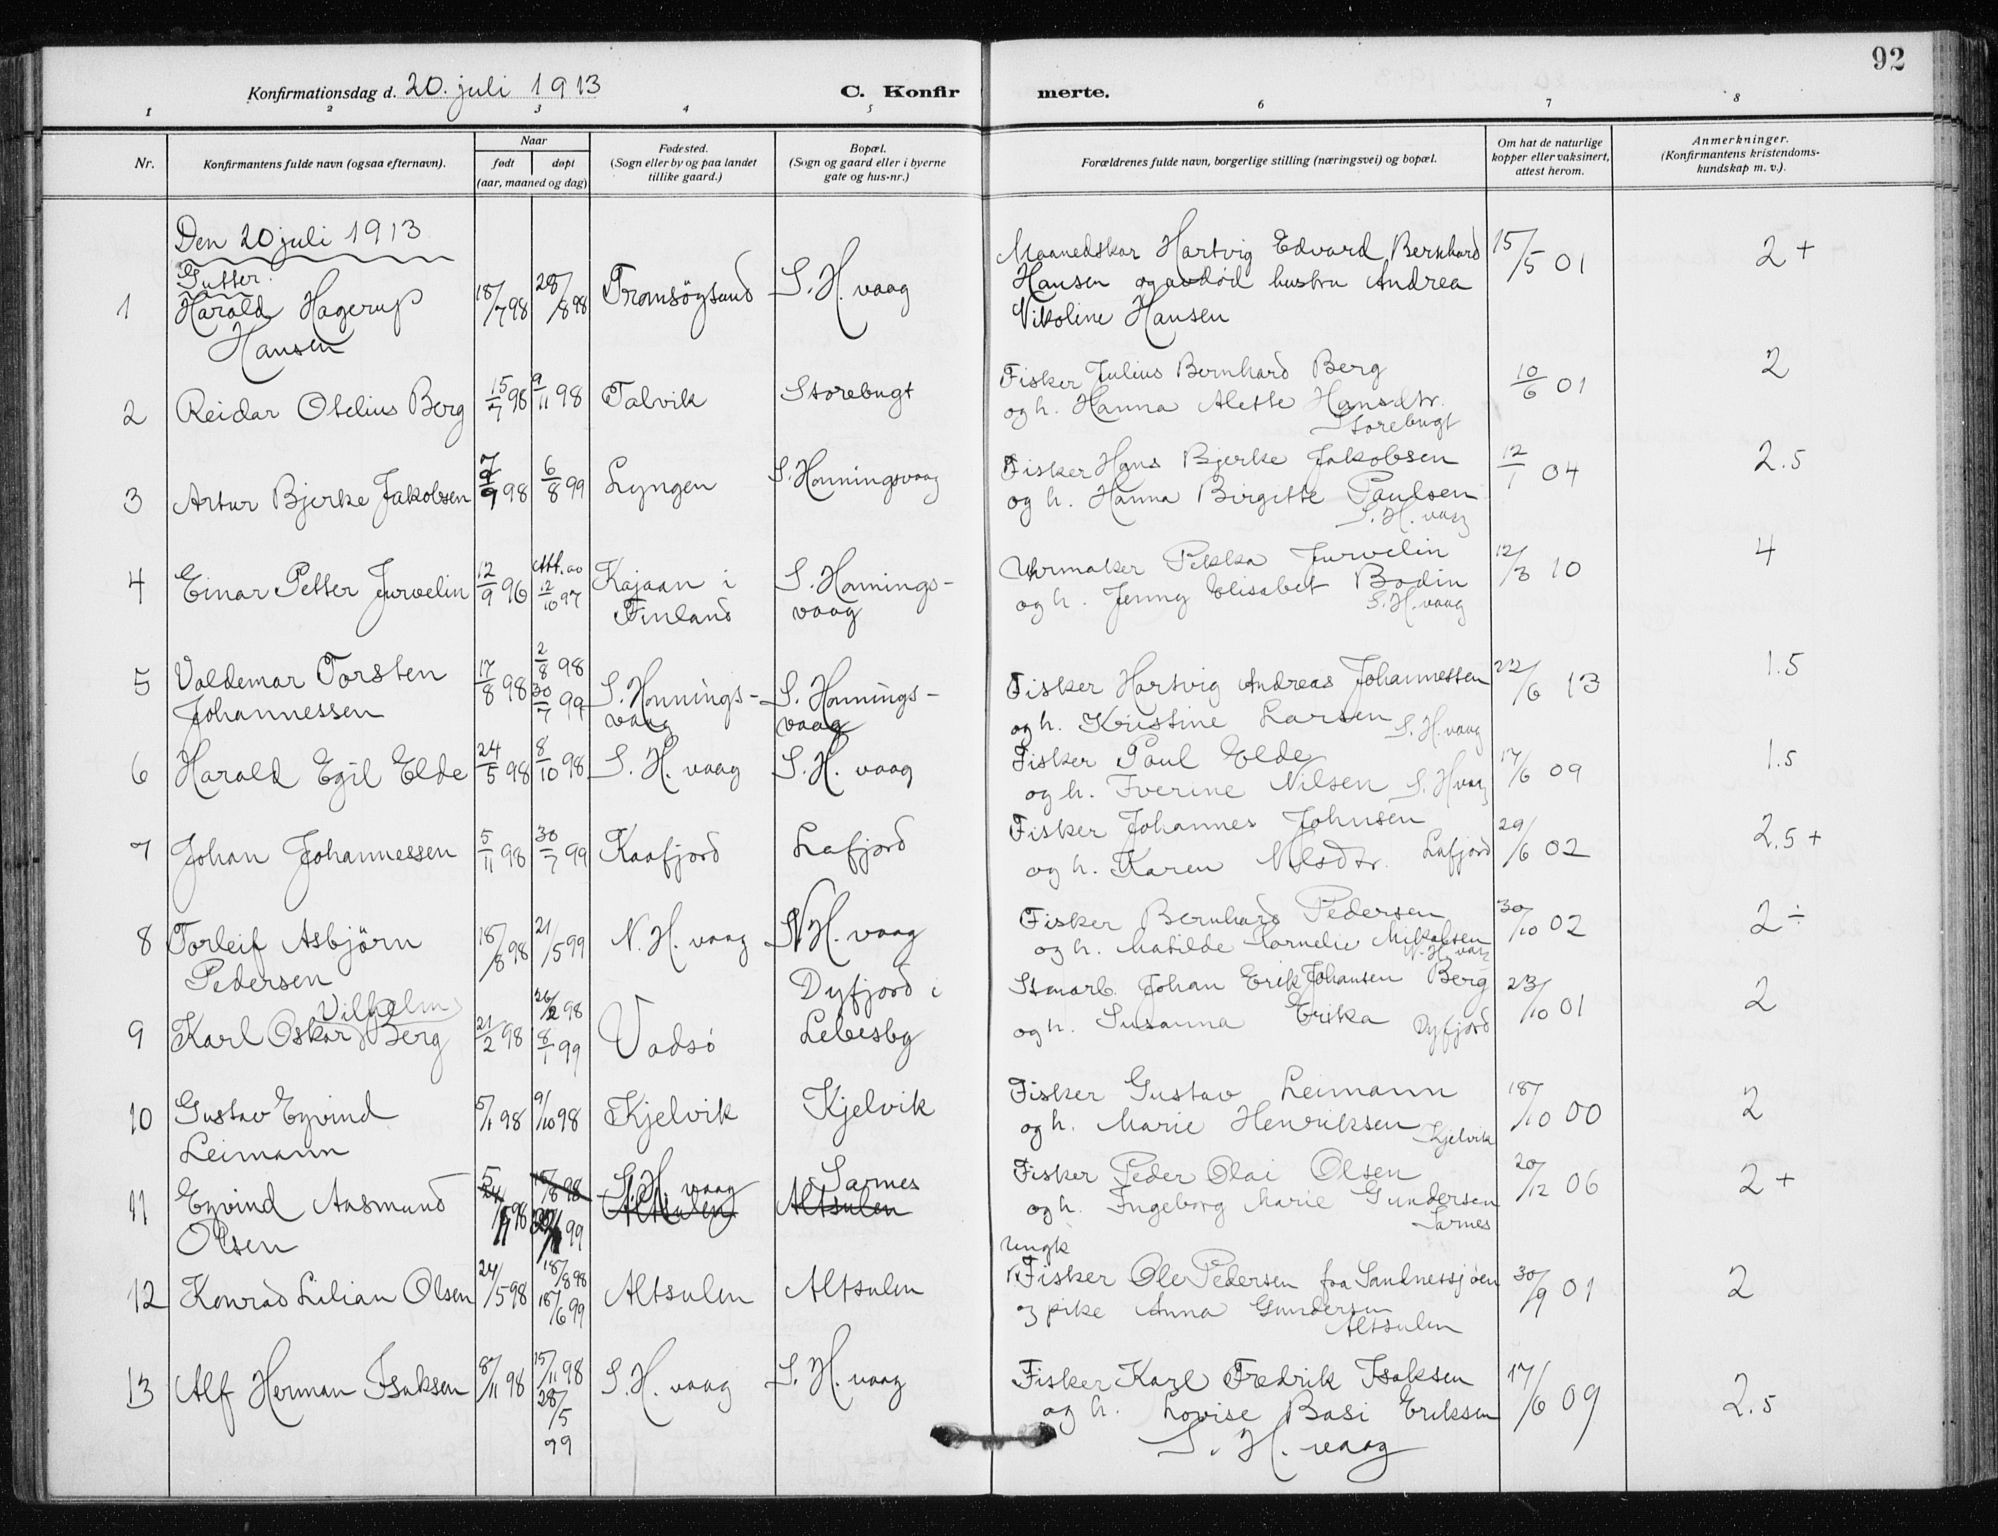 92
Konfirmationsdag d. 20. juli 1913 C. Konfirmerte.
1 2 3 4 5 6 7 8
Nr. Konfirmantens fulde navn (ogsaa efternavn). Naar født døpt (aar, maaned og dag) Fødested. (Sogn eller by og paa landet tillike gaard.) Bopæl. (Sogn og gaard eller i byerne gate og hus-nr.) Forældrenes fulde navn, borgerlige stilling (næringsvei) og bopæl. Om hat de naturlige kopper eller vaksinert, attest herom. Anmerkninger. (Konfirmantens kristendoms-kundskap m. v.).
Den 20 juli 1913
Gutter.
1 Harald Hagerup 18/7 98 28/8 98 Tromsöysund S. H. vaag Maanedskar Hartvig Edvard Bernhard 15/5 01 2+
Hansen Hansen og avdød hustru Andrea
Nikoline Hansen
2 Reidar Otelius Berg 15/7 98 9/11 98 Talvik Storebugt Fisker Julius Bernhard Berg 10/6 01 2
og h. Hanna Alette Hansdtr.
Storebugt
3 Artur Bjerke Jakobsen 7/9 98 6/8 99 Lyngen S. Honningsvaag Fisker Hans Bjerke Jakobsen 12/1 04 2.5
og h. Hanna Birgitte Paulsen
S. H. vaag
4 Einar Petter Jurvelin 12/9 96 Att. av 12/10 97 Kajaan i S. Honnings- Urmaker Pekka Jurvelin 12/3 10 4
Finland vaag og h. Jenny Elisabet Bodin
S. H. vaag
5 Valdemar Torsten 17/8 98 2/8 98 30/7 99 S. Honnings- S. Honnings- Fisker Hartvig Andreas Johannessen 22/6 13 1.5
Johannessen vaag vaag og h. Kristine Larsen S. H. vaag
6 Harald Egil Elde 24/5 98 8/10 98 S. H. vaag S. H. vaag Fisker Paul Elde 17/6 09 1.5
og h. Iverine Nilsen S. H vaag
7 Johan Johannessen 5/11 98 30/7 99 Kaafjord Lafjord Fisker Johannes Johnsen 29/6 02 2.5+
og h. Karen Nilsdtr. Lafjord
8 Torleif Asbjörn 18/8 98 21/5 99 N. H. vaag N H. vaag Fisker Bernhard Pedersen 30/10 02 2÷
Pedersen og h. Matilde Kornelie Mikalsen
N. H. vaag
Vilhelm
9 Karl Oskar Berg 21/2 98 26/2 98 8/1 99 Vadsö Dyfjord i Lebesby Stmarb. Johan Erik Johansen Berg 23/10 01 2
og h. Susanna Erika Dyfjord
10 Gustav Eyvind 5/1 98 9/10 98 Kjelvik Kjelvik Fisker Gustav Leimann 18/10 00 2
Leimann og h. Marie Henriksen
Kjelvik
11 Eyvind Aasmund 98 18/8 98 99 S. H. vaag Altsulen Sarnes Altsulen Fisker Peder Olai Olsen 20/12 06 2+
Olsen og h. Ingeborg Marie Gundersen
Sarnes
Ungk
12 Konrad Lilian Olsen 24/5 98 18/8 98 18/6 99 Altsulen Altsulen Fisker Ole Pedersen fra Sandnessjöen 30/9 01 2
og pike Anna Gundersen
Altsulen
13 Alf Herman Isaksen 8/11 98 15/11 98 28/5 99 S. H. vaag S. H. vaag Fisker Karl Fredrik Isaksen 17/6 09 2.5
og h. Lovise Basi Eriksen
S. H. vaag